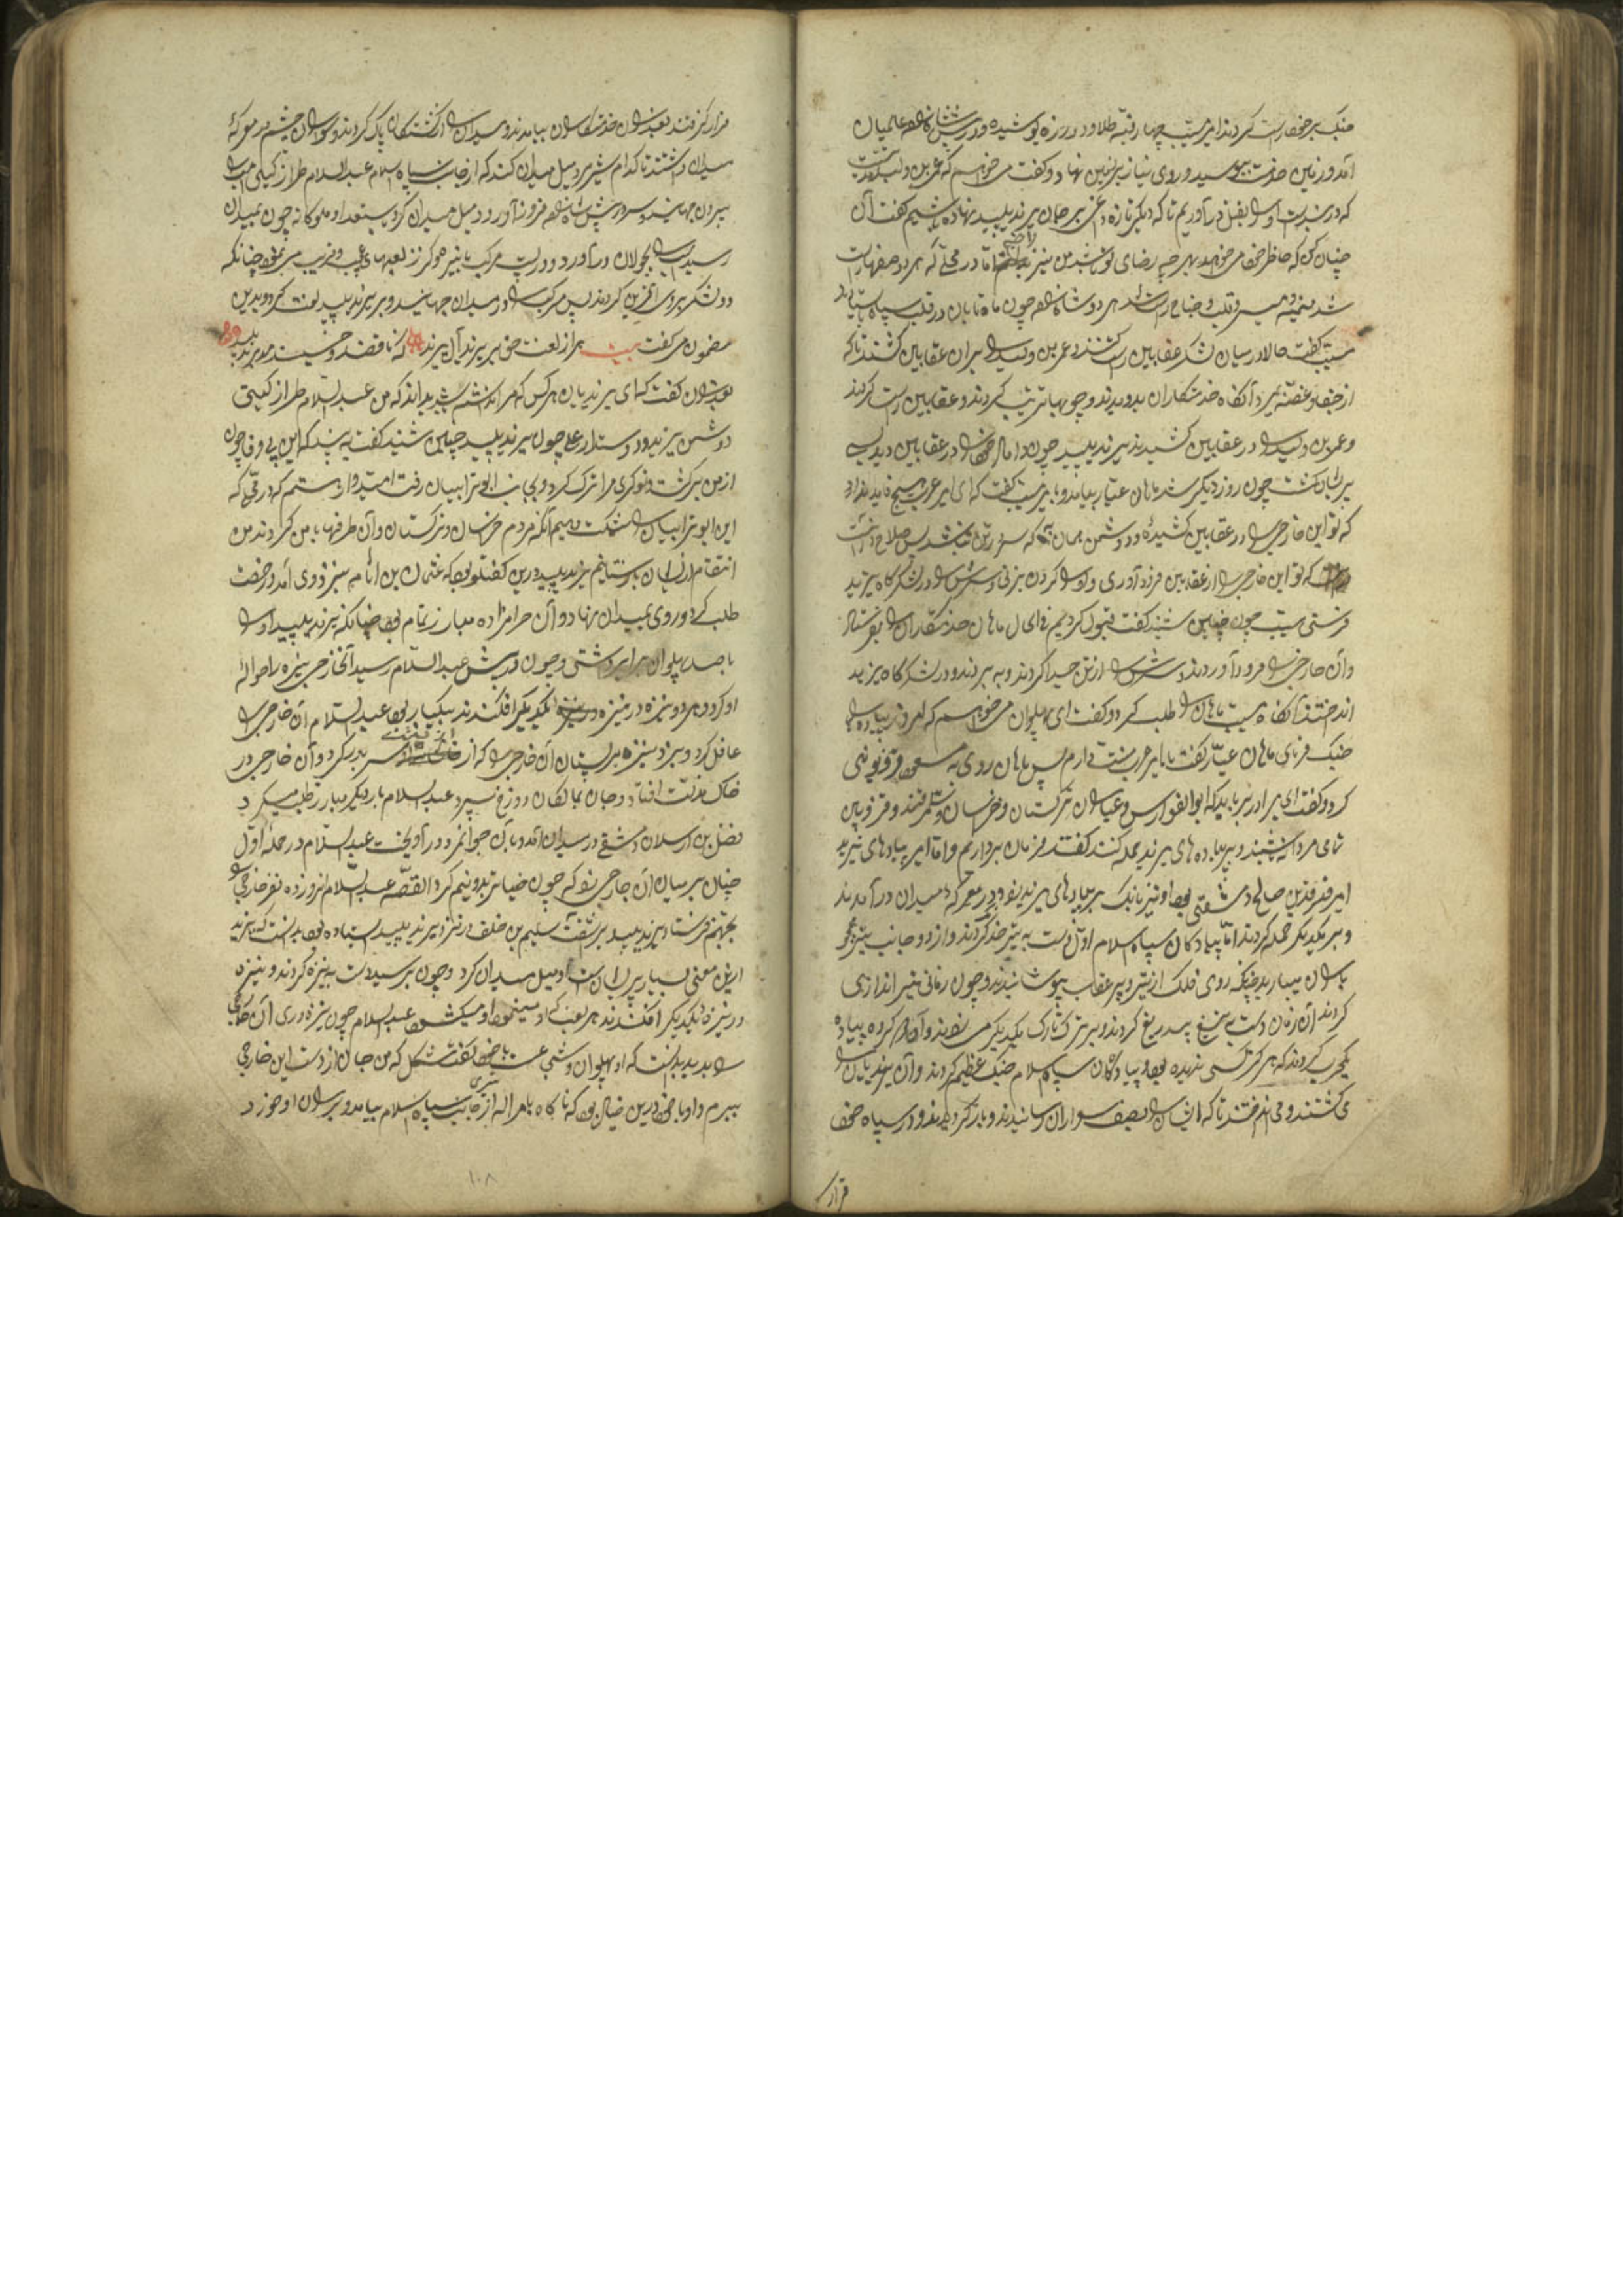 جنگ بر خود راست کردند امیر مسیب چهار قبه طلا دوز در زره پوشیده و در پیش شاهزاده عالمیان
آمد و زمین خدمت ببوسید و روی نیاز بر زمین نهاد و گفت می خواهم که عمر بن ولید
که در بند است او را بقتل در آوریم تا که دیگر تازه داغی بر جان یزید پلید نهاده باشیم گفت آن
چنان کن که خاطر خود می خواهد بهر چه رضای تو باشد من نیز راضیم اما در محلی که هر دو صف راست
شد میمنه و میسره و قلب و جناح راست شد هر دو شاهزاده چون ماه تابان در قلب سپاه
مسیب گفت حالا در میان لشکر عقابین راست کنند و عمر بن ولید را بر آن عقابین کشند تا که
از خود و غصه بمیرد آنگاه خدمتکاران بدویدند و چوبها ترتیب کردند و عقابین راست کردند
و عمر بن ولید را در عقابین کشیدند یزید پلید چون داماد خود را در عقابین دید بسی
پریشان گشت چون روز دیگر شد ماهان عیار بیامد و با امیر مسیب گفت که ای امیر عرب هیچ فایده ندارد
که تو این خارجی را در عقابین کشیده و دشمن همان به که سر در تن نباشد پس صلاح در آنست
که تو این خارجی را از عقابین فرود آوری و او را گردن بزنی و سرش را در لشکرگاه یزید
فرستی مسیب چون چنین شنید گفت قبول کردیم فی الحال ماهان خدمتکاران را بفرستاد
و آن خارجی را فرود آوردند و سرش را از تن جدا کردند و به بردند و در لشکرگاه یزید
انداختند آنگاه مسیب ماهان را طلب کرد و گفت ای پهلوان می خواهم که امروز پیاده را
جنگ فرمای ماهان عیار گفت یا امیر عرب منت دارم پس ماهان روی به مسعود قزوینی
کرد و گفت ای برادر می باید که ابوالفوارس و عیاران ترکستان و خراسان و سمرقند و قزوین
تمامی مردانه باشید و بر پیاده های یزید حمله کنند گفتند فرمان برداریم و اما امیر پیادهای یزید
صالح دمشقی بود او نیز بانگ بر پیادهای یزید بزد و در معرکه میدان در آمدند
و بر یکدیگر حمله کردند اما پیادگان سپاه اسلام اول دست به تیر خدنگ کردند و از دو جانب تیر همچو
باران میبارید چنانکه روی فلک از تیر و پر عقاب بپوشانیدند و چون زمانی تیر اندازی
کردند آن زمان دست به تیغ بیدریغ کردند و بر ترک تارک یکدیگر می زدند و آن هر دو گروه پیاده
یکجرب کردند که هرگز کسی ندیده بود و پیادگان سپاه اسلام جنگ عظیم کردند و آن یزیدیان را
می کشتند و می انداختند تا که ایشان را بصف سواران رسانیدند و باز گردیدند و در سپاه خود
قرار
قرار گرفتند بعد از آن خدمتکاران بیامدند و میدان را از کشتگان پاک کردند و سواران چشم در معرکه
میدان داشتند تا کدام شیرمرد میل میدان کند که از جانب سپاه اسلام عبدالسلام طراز گیتی مرکب را
بیرون جهانید و سر در پیش شاهزاده فرود آورد و میل میدان کرد با استعداد ملوکانه چون بمیدان
رسید مرکب را بجولان در آورد و در پشت مرکب با نیزه خود لعبهای عجب و غریب می نمود چنانکه
دو لشکر بر وی آفرین کردند پس مرکب را در میدان جهانید و بر یزید پلید لعنت کرد و بدین
مضمون می گفت بیت هزار لعنت حق بر یزید و آل یزید که ناقصند و خسیسند و مرید پلید
بعد از آن گفت که ای یزیدیان هر کس که مرا نداند بداند که من عبدالسلام طراز گیتی
دشمن یزید و دوستدار علی چون یزید پلید چنین شنید گفت به بینید که این بی وفا چون
از من برگشت و نوکری مرا ترک کرد و بجانب ابوترابیان رفت امیدوار هستم که در محلی که
این ابوترابیان را شکست دهیم آنکه مردم خراسان و ترکستان و آن طرفها با من کردند من
انتقام از ایشان بستانیم یزید پلید درین گفتگو بود که عثمان بن اثامه سبزروی آمد و رخصت
طلب کرد و روی بمیدان نهاد و آن حرامزاده مبارز تمام بود چنانکه یزید پلید او را
با صد پهلوان برابر داشتی و چون در پیش عبدالسلام رسید آنخارجی نیزه را حواله
او کرد و هر دو نیزه در نیزه یکدیگر افکندند بیکبار بود عبدالسلام آن خارجی را
غافل کرد و بزد نیزه بر پستان آن خارجی که از پشتش بدر کرد و آن خارجی در
خاک مذلت افتاد و جان بمالکان دوزخ سپرد عبدالسلام بار دیگر مبارز طلب میکرد
فضل بن ارسلان دمشقی در میدان آمد و با آن جوانمرد در آویخت عبدالسلام در حمله اول
چنان بر میان آن خارجی زد که چون خیار تر بدو نیم کرد القصه عبدالسلام آنروز ده نفر خارجی را
بجهنم فرستاد یزید پلید بر آشفت سلیم بن خلف در نزد یزید پلید ایستاده بود بدانست که یزید
ازین معنی بسیار پریشان است او میل میدان کرد و چون برسید دست به نیزه کردند و نیزه
در نیزه یکدیگر افکندند هر لعب که او مینمود او میکشود عبدالسلام چون نیزه وری آن خارجی
را بدید بدانست که او پهلوان و شجاع است با خود گفت مشکل که من جان از دست این خارجی
ببرم و او با خود درین خیال بود که ناگاه بامر اله از جانب سپاه اسلام تیری بیامد و بر ران او خورد
۱۰۸